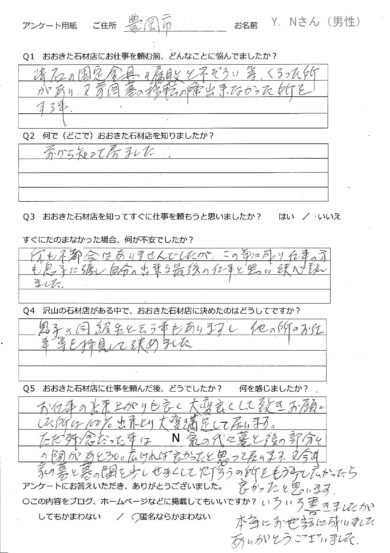 アンケート用紙　ご住所　豊岡市　お名前　Y. Nさん（男性）
Q1　おおきた石材店にお仕事を頼む前、どんなことに悩んでましたか？
があり、
する事。
Q2　何で（どこで）おおきた石材店を知りましたか？
前から知って居ました
Q3　おおきた石材店を知ってすぐに仕事を頼もうと思いましたか？　はい　／　いいえ
すぐにたのまなかった場合、何が不安でしたか？
何も不都合はありませんでしたが、この年に成り仕事の方
も息子に譲し自分の出来る最後の仕事と思い
ました。
Q4　沢山の石材店がある中で、おおきた石材店に決めたのはどうしてですか？
息子の同級生と言う事もありますし　他の所のお仕
事等を拝見して決めました
Q5　おおきた石材店に仕事を頼んだ後、どうでしたか？　何を感じましたか？
お仕事の出来上がりも良く大変良くして頂きお願い
した所は 大変満足して居ります。
ただ残念だった事は　N　家の代々墓と 部分と
の間があと 広ければ良かったと思って居ります 又今年
家の墓と墓の間を少しせまくして だろうの所をもう 広かったら
良かったと思います。
アンケートにお答えいただき、ありがとうございました。
○この内容をブログ、ホームページなどに掲載してもいいですか？
いろいろ書きましたが
してもかまわない　／　匿名ならかまわない
本当にお世話に成りました
ありがとうございました。